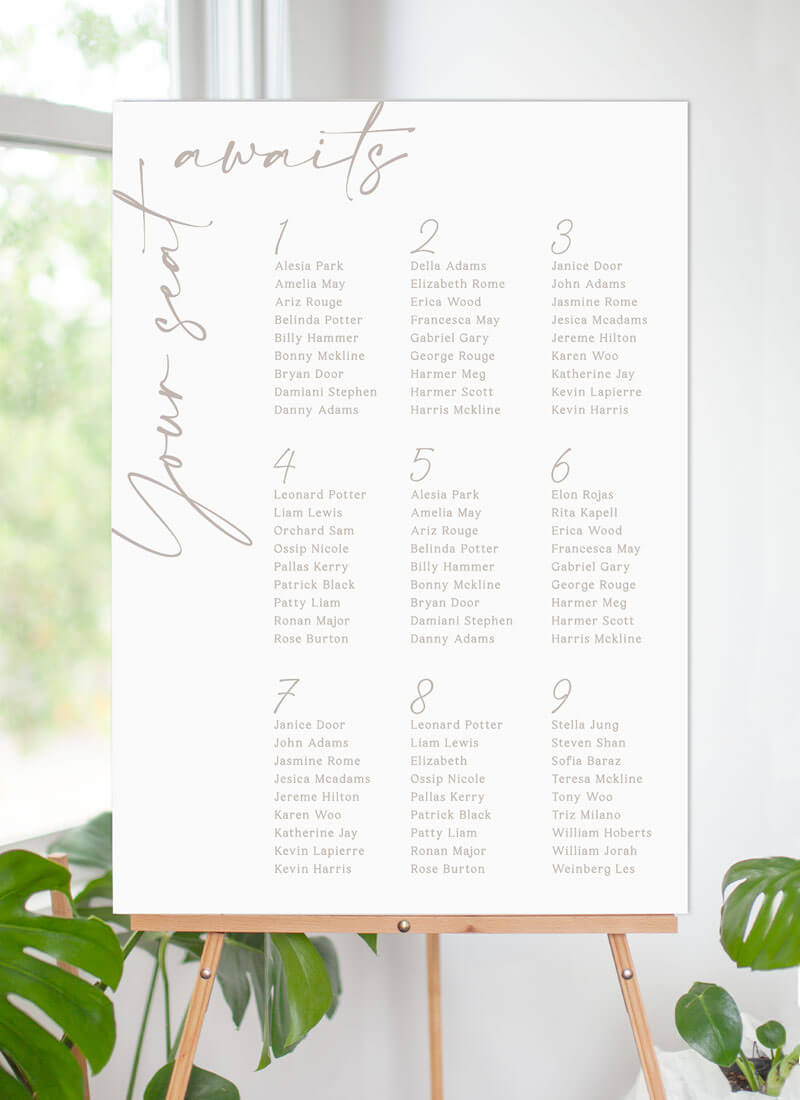 Your seat
awaits
1
Alesia Park
Amelia May
Ariz Rouge
Belinda Potter
Billy Hammer
Bonny Mckline
Bryan Door
Damiani Stephen
Danny Adams
2
Della Adams
Elizabeth Rome
Erica Wood
Francesca May
Gabriel Gary
George Rouge
Harmer Meg
Harmer Scott
Harris Mckline
3
Janice Door
John Adams
Jasmine Rome
Jesica Mcadams
Jereme Hilton
Karen Woo
Katherine Jay
Kevin Lapierre
Kevin Harris
4
Leonard Potter
Liam Lewis
Orchard Sam
Ossip Nicole
Pallas Kerry
Patrick Black
Patty Liam
Ronan Major
Rose Burton
5
Alesia Park
Amelia May
Ariz Rouge
Belinda Potter
Billy Hammer
Bonny Mckline
Bryan Door
Damiani Stephen
Danny Adams
6
Elon Rojas
Rita Kapell
Erica Wood
Francesca May
Gabriel Gary
George Rouge
Harmer Meg
Harmer Scott
Harris Mckline
7
Janice Door
John Adams
Jasmine Rome
Jesica Mcadams
Jereme Hilton
Karen Woo
Katherine Jay
Kevin Lapierre
Kevin Harris
8
Leonard Potter
Liam Lewis
Elizabeth
Ossip Nicole
Pallas Kerry
Patrick Black
Patty Liam
Ronan Major
Rose Burton
9
Stella Jung
Steven Shan
Sofia Baraz
Teresa Mckline
Tony Woo
Triz Milano
William Hoberts
William Jorah
Weinberg Les